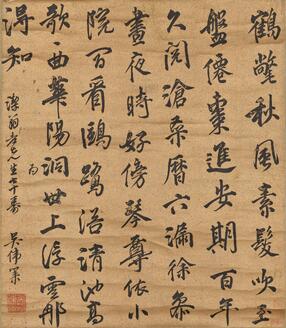 鶴氅秋風素髮吹金
盤僊棗進安期百年
久閱滄桑曆六漏徐
晝夜時好傍琴尊依小
院閒看鷗鷺浴清池高
歌一曲華陽洞世上浮雲那
得知
翁老先生七十壽 吳偉業